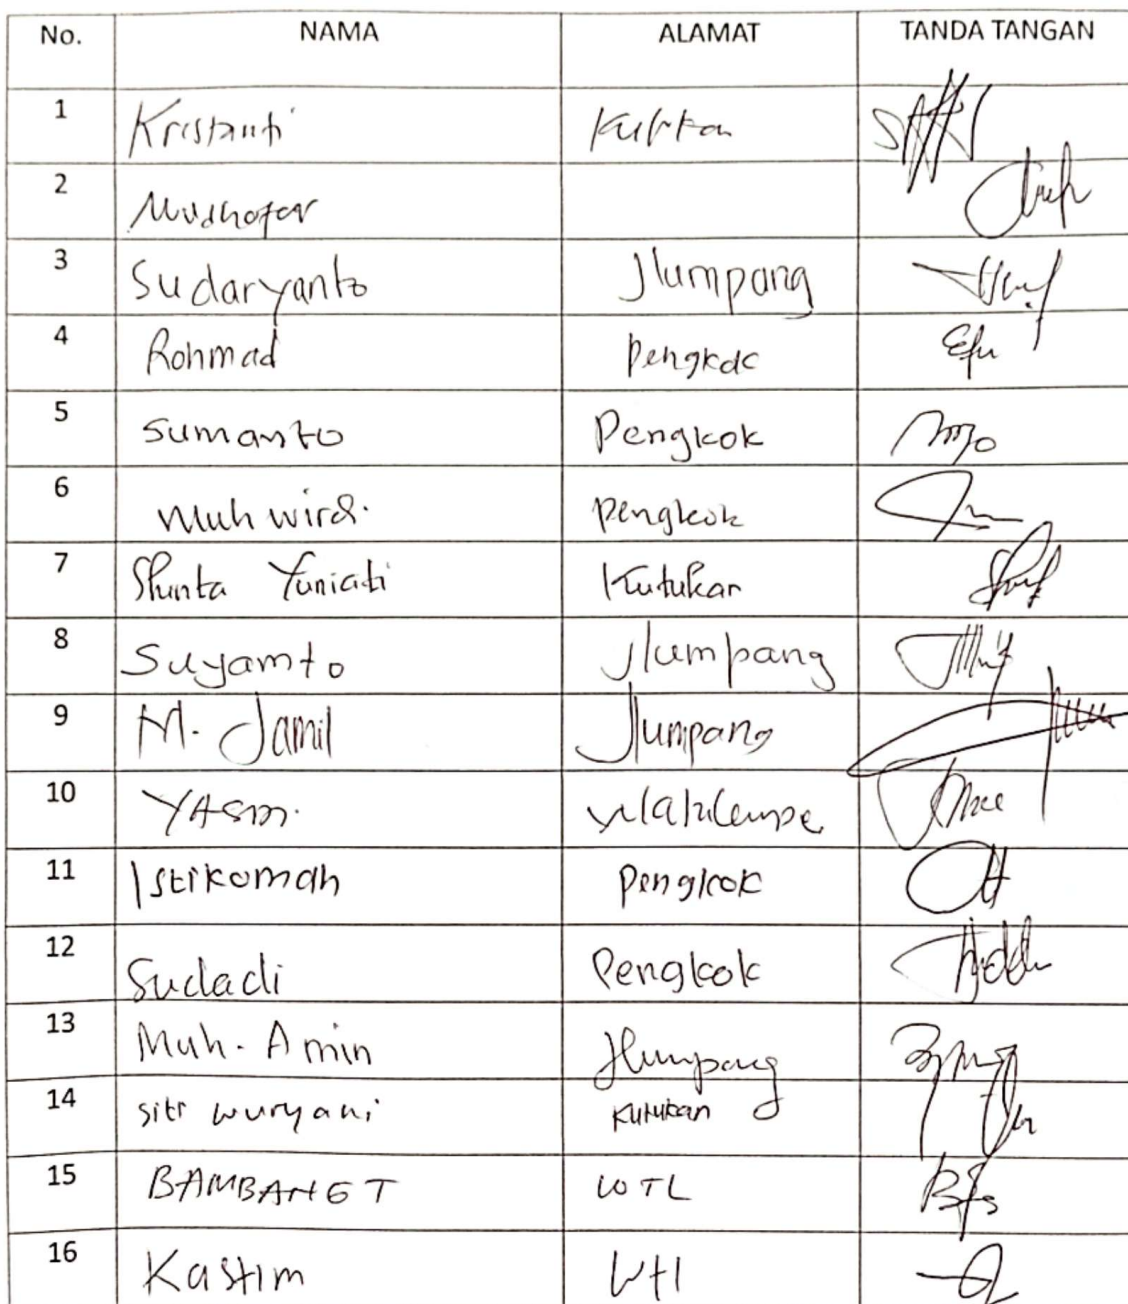 No. NAMA ALAMAT TANDA TANGAN
1 Kristanti
2 Mudhofar
3 Sudaryanto Jlumpang
4 Rohmad Pengkok
5 Sumanto Pengkok
6 Muh wird. Pengkok
7 Shinta Yuniati Kutukan
8 Suyamto Jlumpang
9 M. Jamil Jlumpang
10 YAsm.
11 Istikomah Pengkok
12 Sudadi Pengkok
13 Muh. Amin Jlumpang
14 siti wuryani Kutukan
15 BAMBANG T WTL
16 Kastim Wtl